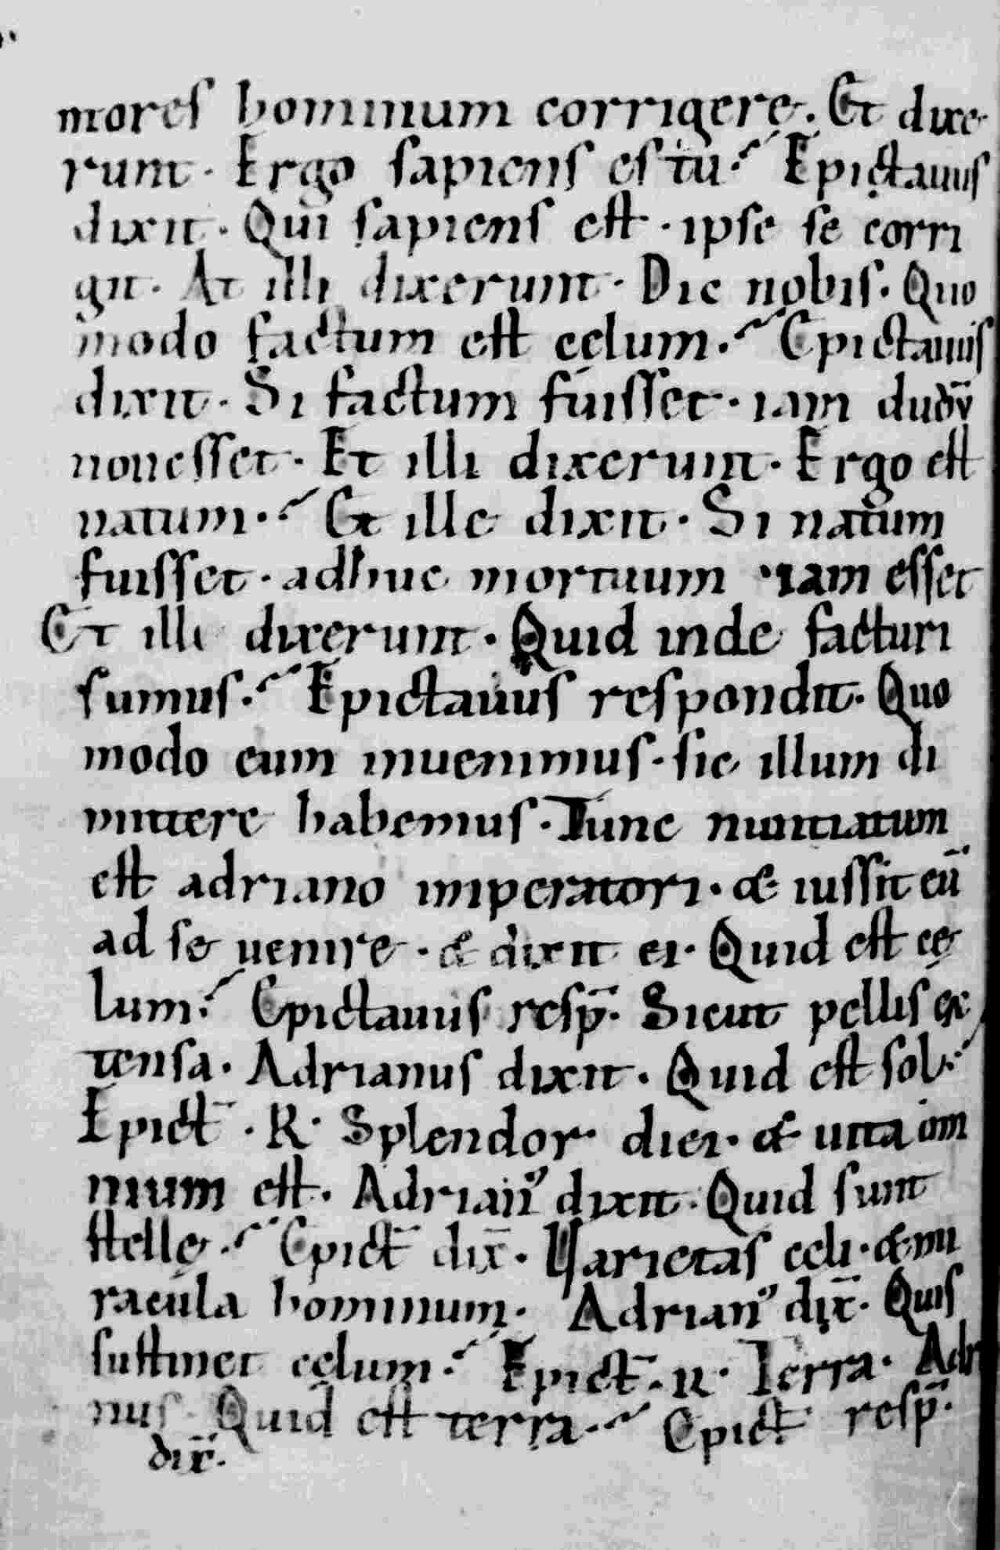 mores hominum corrigere. Et dixe
runt. Ergo sapiens es tu? Epictauus
dixit. Qui sapiens est. ipse se corri
git. At illi dixerunt. Dic nobis. Quo
modo factum est cęlum.? Epictauus
dixit. Si factum fuisset. iam dudū
non esset. Et illi dixerunt. Ergo est
natum.? Et ille dixit. Si natum
fuisset. adhuc mortuum iam esset
Et illi dixerunt. Quid inde facturi
sumus.? Epictauus respondit. Quo
modo eum inuenimus. sic illum di
mittere habemus. Tunc nuntiatum
est adriano imperatori. & iussit eū
ad se uenire. & dixit ei. Quid est cę
lum? Epictauus resp̄. Sicut pellis ex
tensa. Adrianus dixit. Quid est sol.?
Epict̄. R. Splendor diei. & uita om
nium est. Adrian᾽ dixit. Quid sunt
stellę.? Epict̄ dix̄. Varietas celi. & mi
racula hominum. Adrian᾽ dix̄. Quis
sustinet cęlum.? Epict̄. R. Terra. Adri
nus Quid est terra.? Epict̄ resp̄.
dix̄.